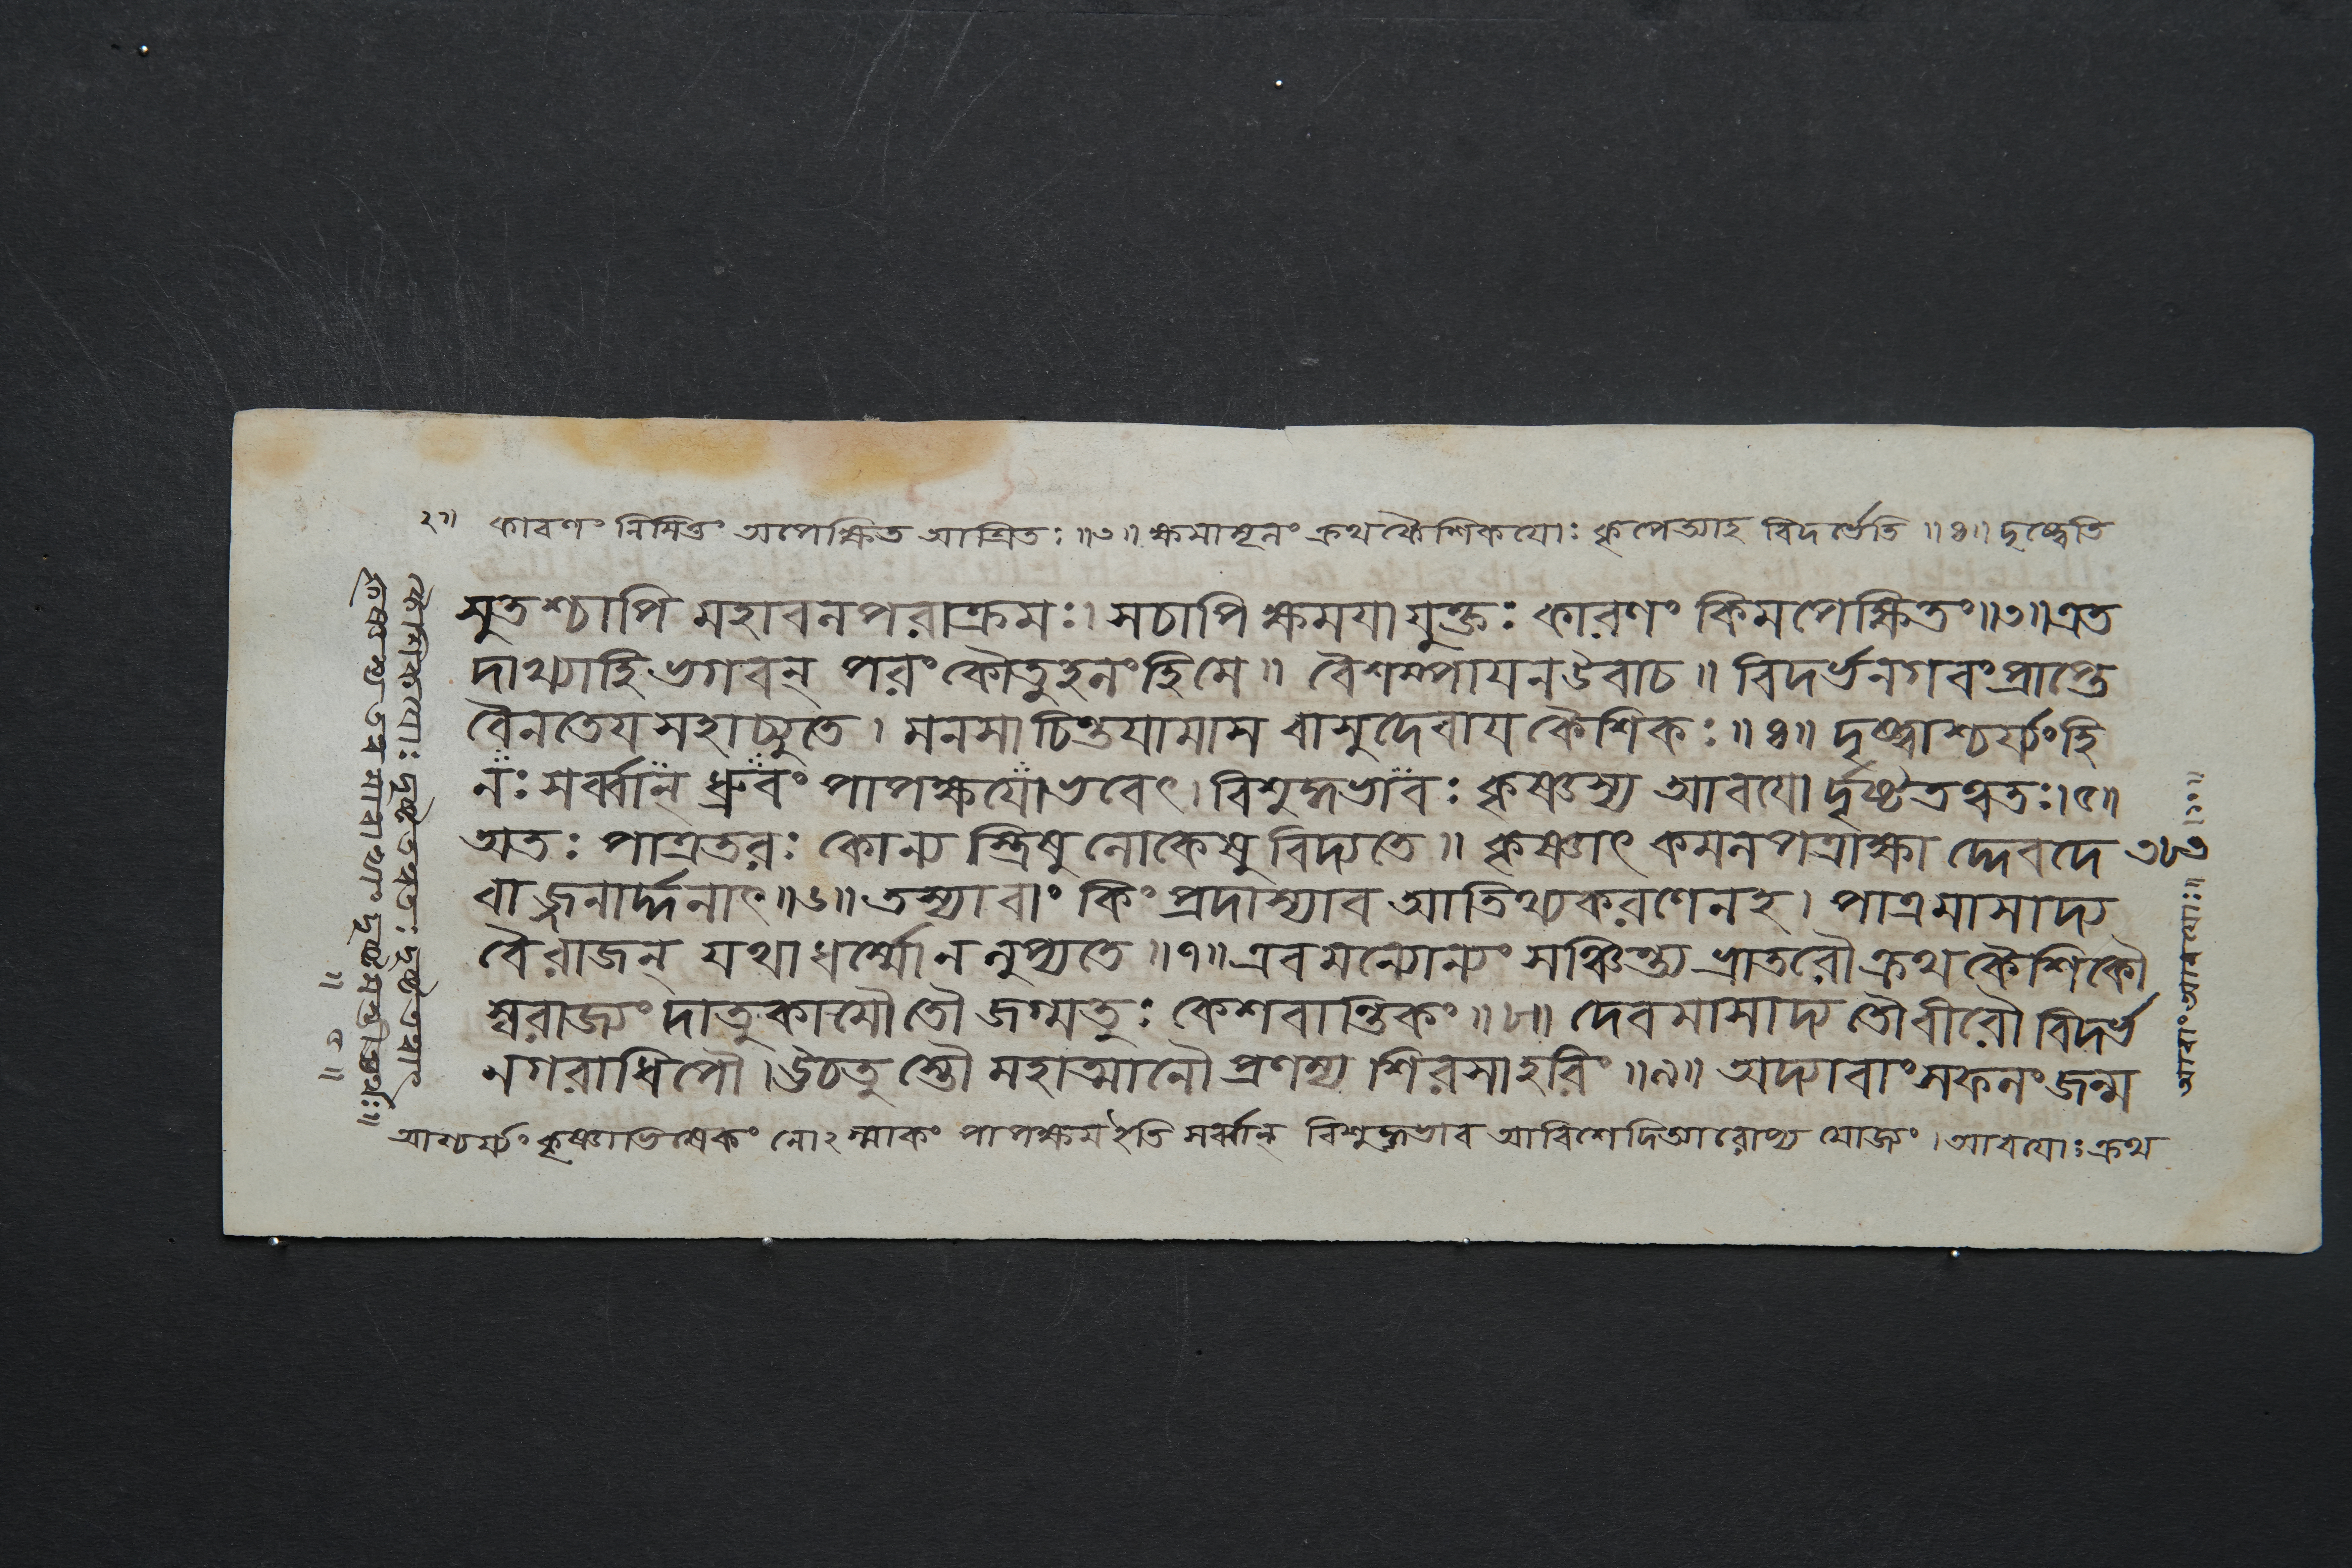 ২॥ কারণং নিমিত্তং অপেক্ষিত আশ্রিতঃ ॥৩॥ ক্ষমামূলং ক্রথকৈশিকযোঃ কৃপেআহ বিদর্ভেতি ॥৪॥ দৃষ্ট্বেতি
সুতশ্চাপি মহাবলপরাক্রমঃ। সচাপি ক্ষমযা যুক্তঃ কারণং কিমপেক্ষিতং॥৩॥এত
দাখ্যাহি ভগবন্ পরং কৌতুহলংহি মে॥ বৈশম্পাযন উবাচ॥ বিদর্ভনগরং প্রাপ্তে
বৈনতেয মহাচ্যুতে। মনসা চিন্তযামাস বাসুদেবায কৈশিকঃ॥৪॥ দৃষ্ট্বাশ্চর্য্যংহি
নঃ সর্ব্বান্ ধ্রুবং পাপক্ষযোভবেৎ। বিশুদ্ধভাবঃ কৃষ্ণস্য আবযো র্দৃষ্টতত্ত্বতঃ।৫॥
অতঃ পাত্রতরঃ কোন্য স্ত্রিষু লোকেষু বিদ্যতে॥ কৃষ্ণাৎ কমলপত্রাক্ষা দ্দেবদে
বাজ্জনার্দ্দনাৎ॥৬॥ তস্যাবাং কিং প্রদাস্যাব আতিথ্যকরণেনহ। পাত্রমাসাদ্য
বৈ রাজন্ যথা ধর্ম্মো ন লুপ্যতে॥৭॥ এবমন্যোন্যং সঞ্চিন্ত্য ভ্রাতরৌ ক্রথকৈশিকৌ
স্বরাজ্যং দাতুকামৌ তৌ জগ্মতুঃ কেশবান্তিকং॥৮॥ দেবমাসাদ্য তৌ বীরৌ বিদর্ভ
নগরাধিপৌ। উচতু স্তৌ মহাত্মানৌ প্রণম্য শিরসা হরিং॥৯॥ অদ্যাবাং সফলং জন্ম
আশ্চর্য্যং কৃষ্ণাভিষেকং নোঽস্মাকং পাপক্ষয ইতি সর্ব্বান্ বিশুদ্ধভাব আবিশেদিআরোপ্য যোজ্যং। আবযোঃ ক্রথ
কৈশিকযোঃ দৃষ্টতত্ত্বতঃ
৩৮৩
আবাং আবযোঃ॥